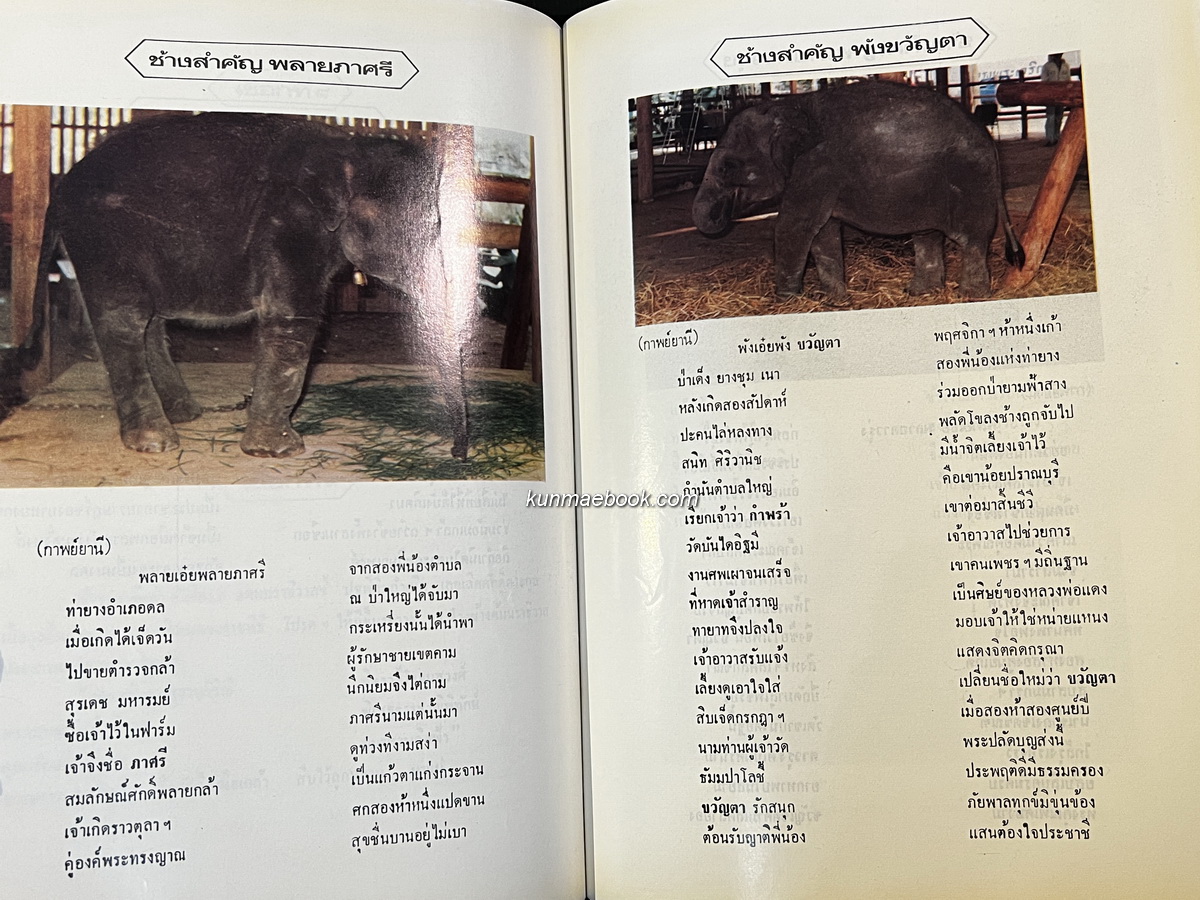 ช้างสำคัญ พลายภาศรี
(กาพย์ยานี)
พลายเอ๋ยพลายภาศรี จากสองพี่น้องตำบล
ท่ายางอำเภอดล ณ ป่าใหญ่ได้จับมา
เมื่อเกิดได้เจ็ดวัน กระเหรี่ยงนั้นได้นำพา
ไปขายตำรวจกล้า ผู้รักษาชายเขตคาม
สุรเดช มหารมย์ นึกนิยมจึงไต่ถาม
ซื้อเจ้าไว้ในฟาร์ม ภาศรีนามแต่นั้นมา
เจ้าจึงชื่อ ภาศรี ดูท่วงทีงามสง่า
สมลักษณ์ศักดิ์พลายกล้า เป็นแก้วตาแก่งกระจาน
เจ้าเกิดราวตุลา ฯ ศกสองห้าหนึ่งแปดขาน
คู่องค์พระทรงญาณ สุขชื่นบานอยู่ไม่เบา
ช้างสำคัญ พังขวัญตา
(กาพย์ยานี)
พังเอ๋ยพัง ขวัญตา พฤศจิกา ฯ ห้าหนึ่งเก้า
ป่าเด็ง ยางชุม เนา สองพี่น้องแห่งท่ายาง
หลังเกิดสองสัปดาห์ ร่วมออกป่ายามฟ้าสาง
ปะคนไล่หลงทาง พลัดโขลงช้างถูกจับไป
สนิท ศิริวานิช มีน้ำจิตเลี้ยงเจ้าไว้
กำนันตำบลใหญ่ คือเขาน้อยปราณบุรี
เรียกเจ้าว่า กำพร้า เขาต่อมาสิ้นชีวี
วัดบันไดอิฐมี เจ้าอาวาสไปช่วยการ
งานศพเผาจนเสร็จ เขาคนเพชร ฯ มีถิ่นฐาน
ที่หาดเจ้าสำราญ เป็นศิษย์ของหลวงพ่อแดง
ทายาทจึงปลงใจ มอบเจ้าให้ใช่หน่ายแหนง
เจ้าอาวาสรับแจ้ง แสดงจิตคิดกรุณา
เลี้ยงดูเอาใจใส่ เปลี่ยนชื่อใหม่ว่า ขวัญตา
สิบเจ็ดกรกฎา ฯ เมื่อสองห้าสองศูนย์ปี
นามท่านผู้เจ้าวัด พระปลัดบุญส่งนี้
ธัมมปาโลชี้ ประพฤติดีมีธรรมครอง
ขวัญตา รักสนุก ภัยพาลทุกข์มิขุ่นข้อง
ต้อนรับญาติพี่น้อง แสนต้องใจประชาชี
kunmaebook.com